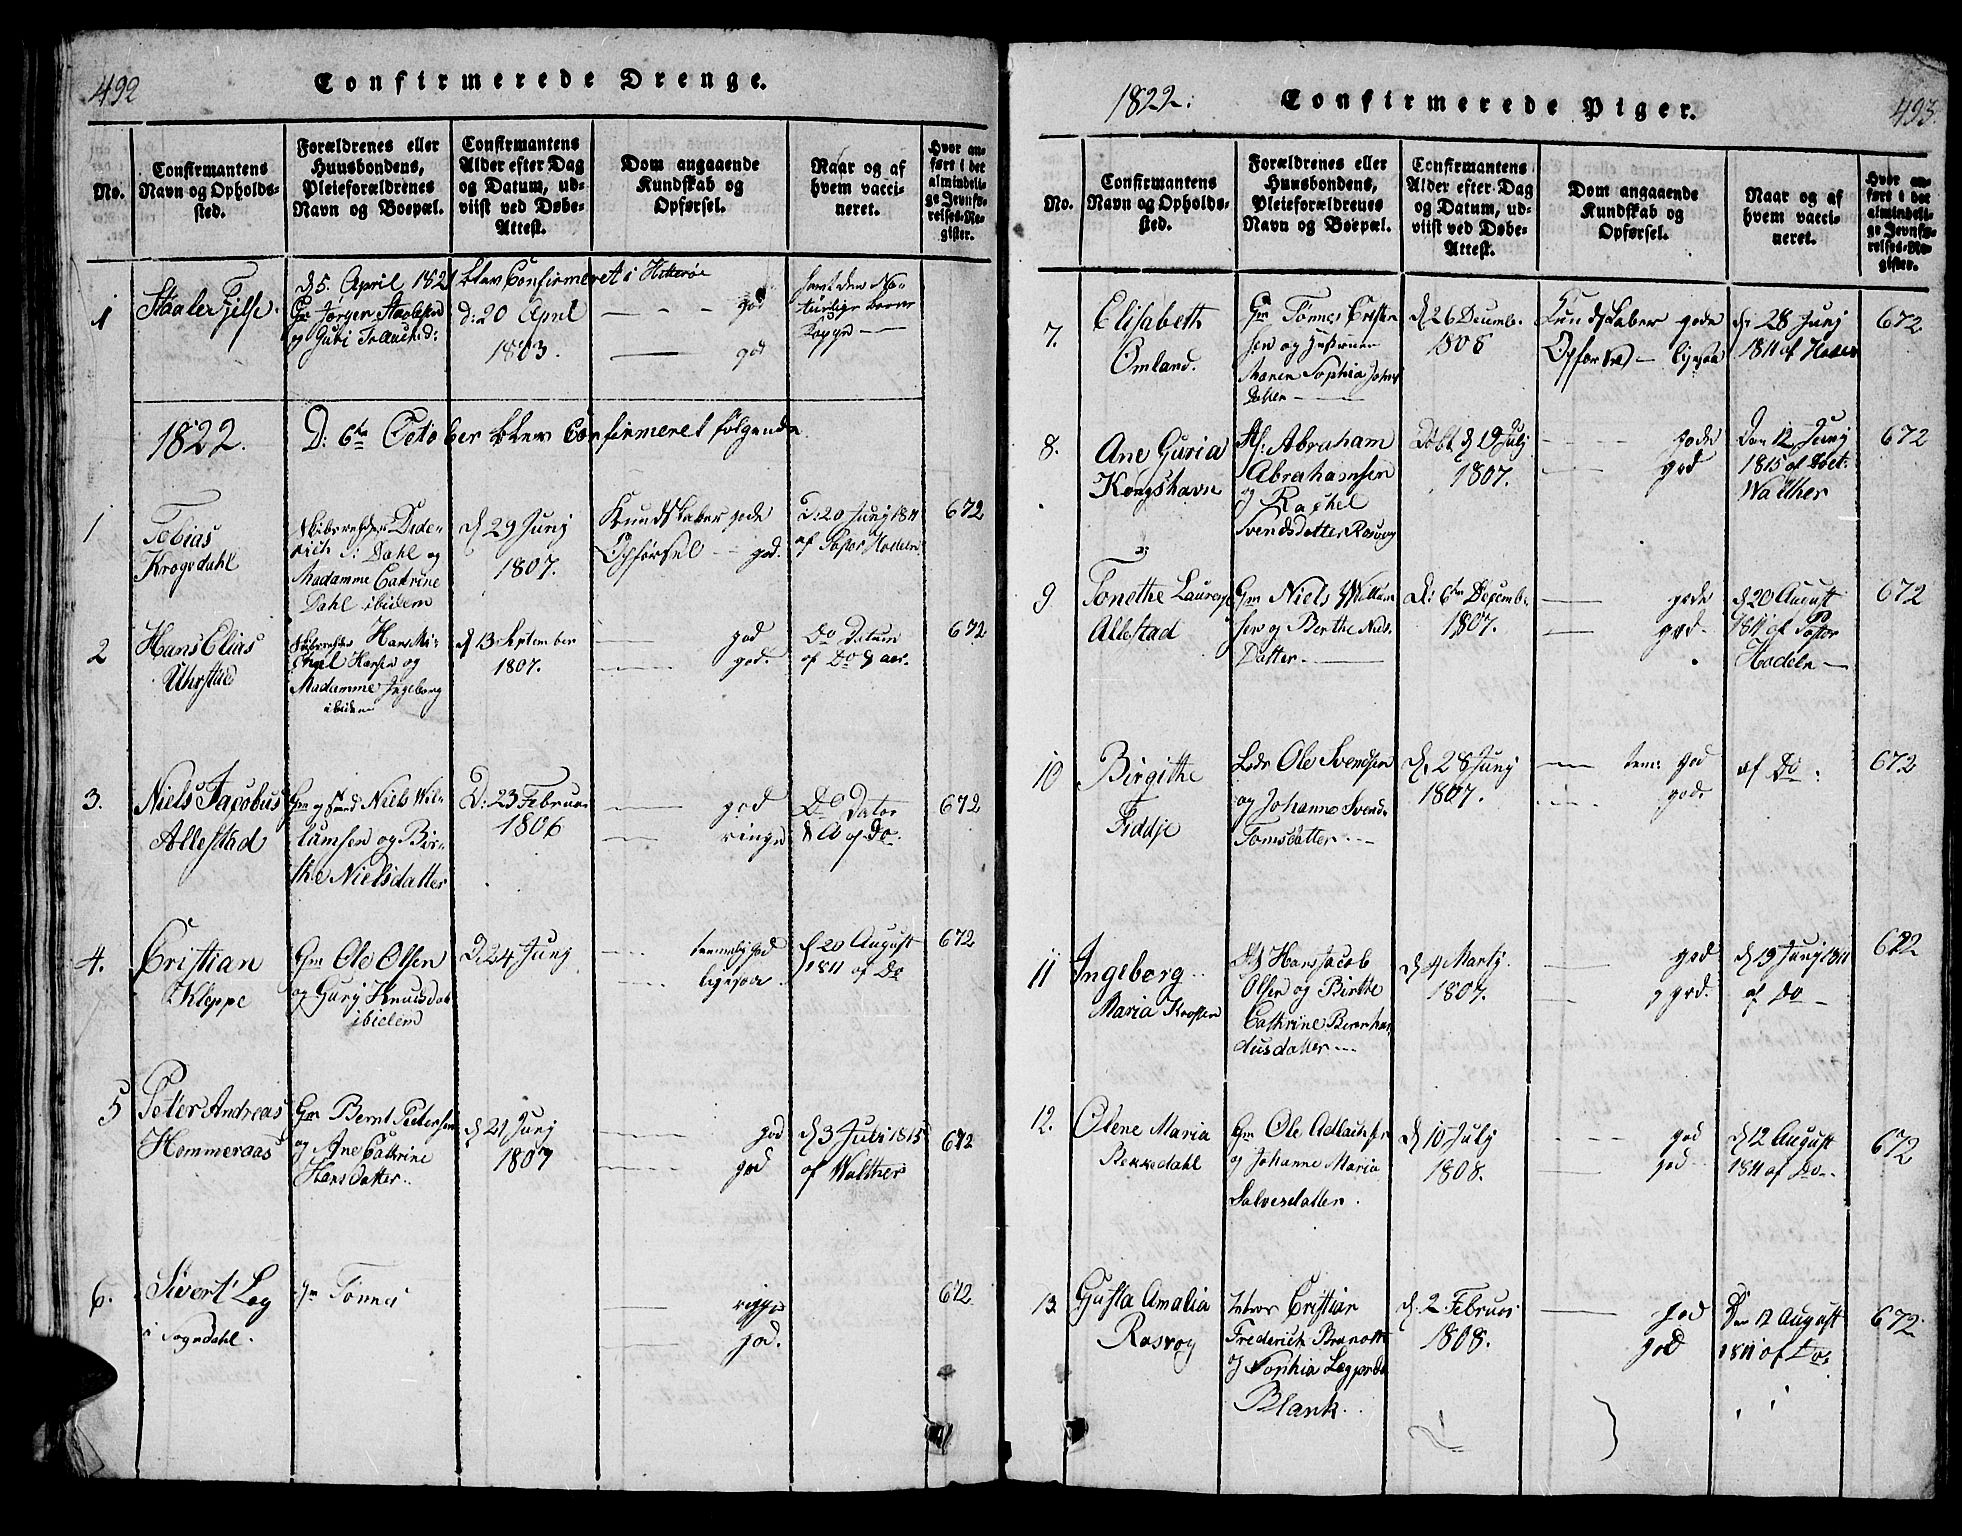 492
Confirmerede Drenge.
No.
Confirmantens
Navn og Opholds-
sted.
Forældrenes eller
Huusbondens,
Pleieforældrenes
Navn og Boepæl.
Confirmantens
Alder efter Dag
og Datum, ud-
viist ved Døbe-
Attest.
Dom angaaende
Kundskab og
Opførsel.
Naar og af
hvem vacci-
neret.
Hvor an-
ført i det
almindeli-
ge Jevnfø-
relses-Re-
gister.
d 5. April 1821 blev Confirmeret i Hitterøe
1
Staaler Fjelse.
Gm Jørgen Staalesen
og Guri
D: 20 April
1803.
— god
— god
havt den Na-
turlige Barne
1822.
D: 6te October blev Confirmeret følgende
1
Tobias
Krogsdahl
Dide-
rich : Dahl og
Madamme Catrine
Dahl ibidem
d 29 Junj
1807.
Kundskaber gode
Opførsel — god.
D: 20 Junj 1811
af Pastor Hodeln
672
2
Hans Elias
Uhrstad
Hans Mi-
Hansen og
Madamme Ingeborg
ibidem
d 13 September
1807.
— god
— god.
Do Datum
af Do
672
3.
Niels Jacobus
Allestad
Gm Niels Wil-
lumsen og Bir-
the Nielsdatter
D: 23 Februar
1806
— god
— ringe
Do Dato
af Do.
672
4.
Cristian
Kleppe
Gm Ole Olsen
og Gurj Knudsdat
ibidem
D. 24 Junj
— temmelig god
— ligesaa.
d 20 August
1811 af Do
672
5
Peter Andreas
Hommeraas
Gm Bernt Petersen
og Ane Catrine
Hansdatter..
d 21 Junj
1807
— god
— god
d 3 Juli 1815
af Walther
672
6.
Sivert Leg
i Sogndahl.
Gm Tønnes
— god.
672
1822.
Confirmerede Piger.
493.
No.
Confirmantens
Navn og Opholds-
sted.
Forældrenes eller
Huusbondens,
Pleieforældrenes
Navn og Boepæl.
Confirmantens
Alder efter Dag
og Datum, ud-
viist ved Døbe-
Attest.
Dom angaaende
Kundskab og
Opførsel.
Naar og af
hvem vacci-
neret.
Hvor an-
ført i det
almindeli-
ge Jevnfø-
relses-Re-
gister.
7.
Elisabeth
Omland.
Gm Tønnes Cristen
sen og
Maren Sophia Johns
datter —
d 26 Decemb.
1808
Kundskaber gode
Opførsel — ligesaa
d: 28 Junj
1811 af Hodeln
672
8.
Ane Guria
Kongshavn
Abraham
Abrahamsen
og Rachel
Svendsdatter Rasvog
Døbt d 19 Julj
1807.
— gode
— god
Den 12 Junj
1815 af
Walther
672
9
Tonethe Laurenze
Allestad
Gm Niels Willum
sen og Berthe Niels
Datter. —
D: 6te Decembr
1807.
— gode
— god.
d 20 August
1811 af Pastor
Hodeln —
672
10
Birgithe
Fidje
Ole Svendsen
og Johanne Svend
Tomsdatter —
d. 28 Junj
1807.
— tem: god
— god.
af Do.
672
11
Ingeborg
Maria
Hans Jacob
Olsen og Birthe
Cathrine Bernhar
dusdatter —
d 4 Martj
1807.
— god
— god.
d 19 Junj 1811
af Do —
672
12.
Olene Maria
Bekkedahl
Gm Ole Adlachsen
og Johanne Maria
Salvesdatter.
d 10 Julj
1808.
— god
— god
d 12 August
1811 af Do.
672
13
Gusta Amalia
Rasvog
Cristian
Frederich
og Sophia
Blank.
d. 2 Februar
1808.
— god
— god
Den 12 August
1811 af Do.
672